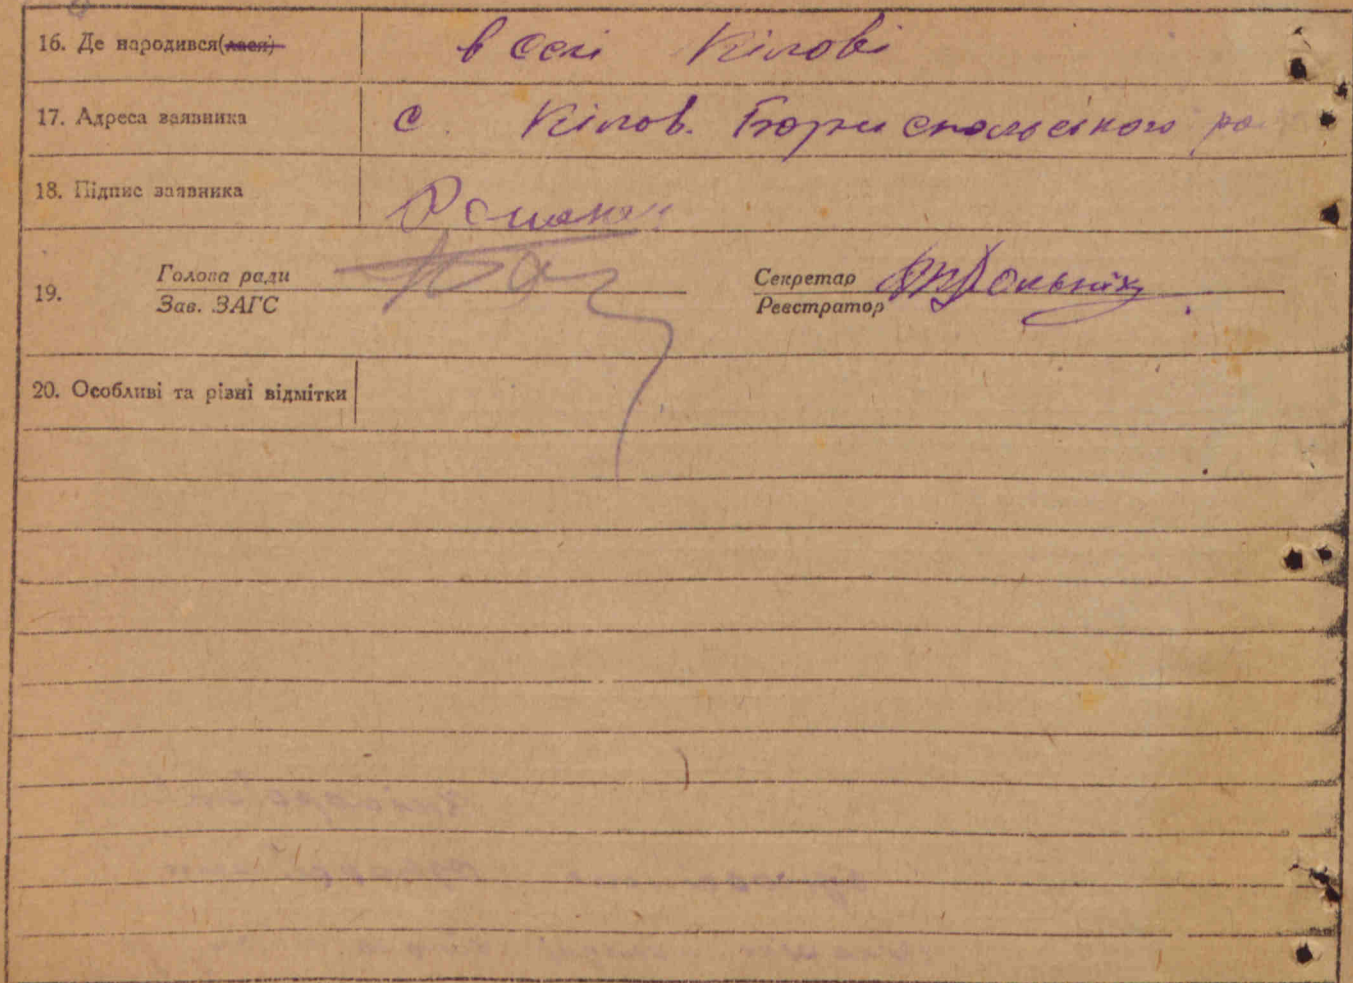 16. Де народився(лася) в селі Кілові
17. Адреса заявника с. Кілов. Бориспольського ра
18. Підпис заявника Романен
19. Голова ради Секретар
Зав. ЗАГС Реєстратор
20. Особливі та різні відмітки